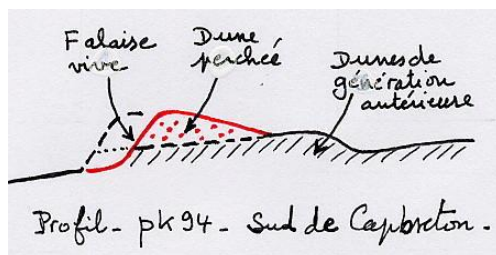 Falaise
vive
Dune
perchée
Dunes de
génération
antérieure
Profil - pk 94 - Sud de Capbreton -